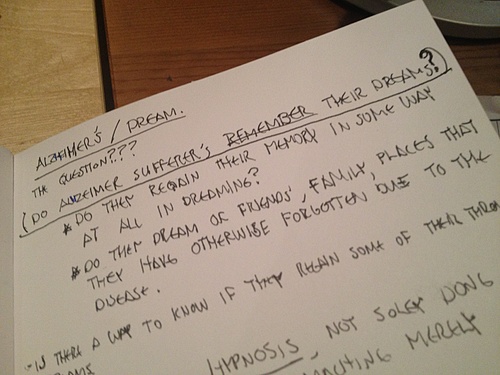 ALZHEIMER'S / DREAM.
THE QUESTION???
(DO ALZEIMER SUFFERER'S REMEMBER THEIR DREAMS?)
* DO THEY REGAIN THEIR MEMORY IN SOME WAY
AT ALL IN DREAMING?
* DO THEY DREAM OF FRIENDS', FAMILY, PLACES THAT
THEY HAVE OTHERWISE FORGOTTEN DUE TO THE
DISEASE.
- IS THERE A WAY TO KNOW IF THEY REGAIN SOME OF THEIR
HYPNOSIS, NOT SOLEY DONG
MERELY